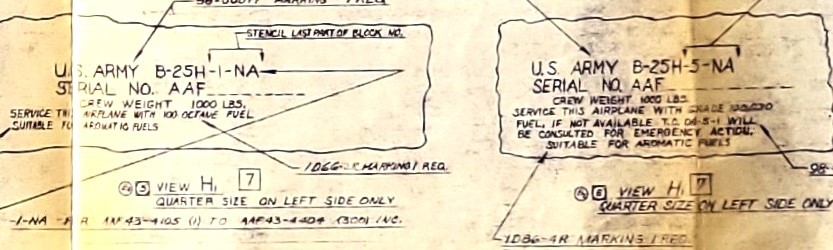 MARKING 1 REQ.
STENCIL LAST PART OF BLOCK NO.
U.S. ARMY B-25H-1-NA
SERIAL NO. AAF
CREW WEIGHT 1000 LBS.
SERVICE THIS AIRPLANE WITH 100 OCTANE FUEL
SUITABLE FOR AROMATIC FUELS
MARKING 1 REQ.
VIEW H1 7
QUARTER SIZE ON LEFT SIDE ONLY
-1-NA AAF 43-4105 (1) TO AAF 43-4404 (300) INC.
U.S. ARMY B-25H-5-NA
SERIAL NO. AAF
CREW WEIGHT 1000 LBS.
SERVICE THIS AIRPLANE WITH GRADE
FUEL, IF NOT AVAILABLE T.O. 06-5-1 WILL
BE CONSULTED FOR EMERGENCY ACTION.
SUITABLE FOR AROMATIC FUELS
98-
VIEW H1 7
QUARTER SIZE ON LEFT SIDE ONLY
MARKING 1 REQ.